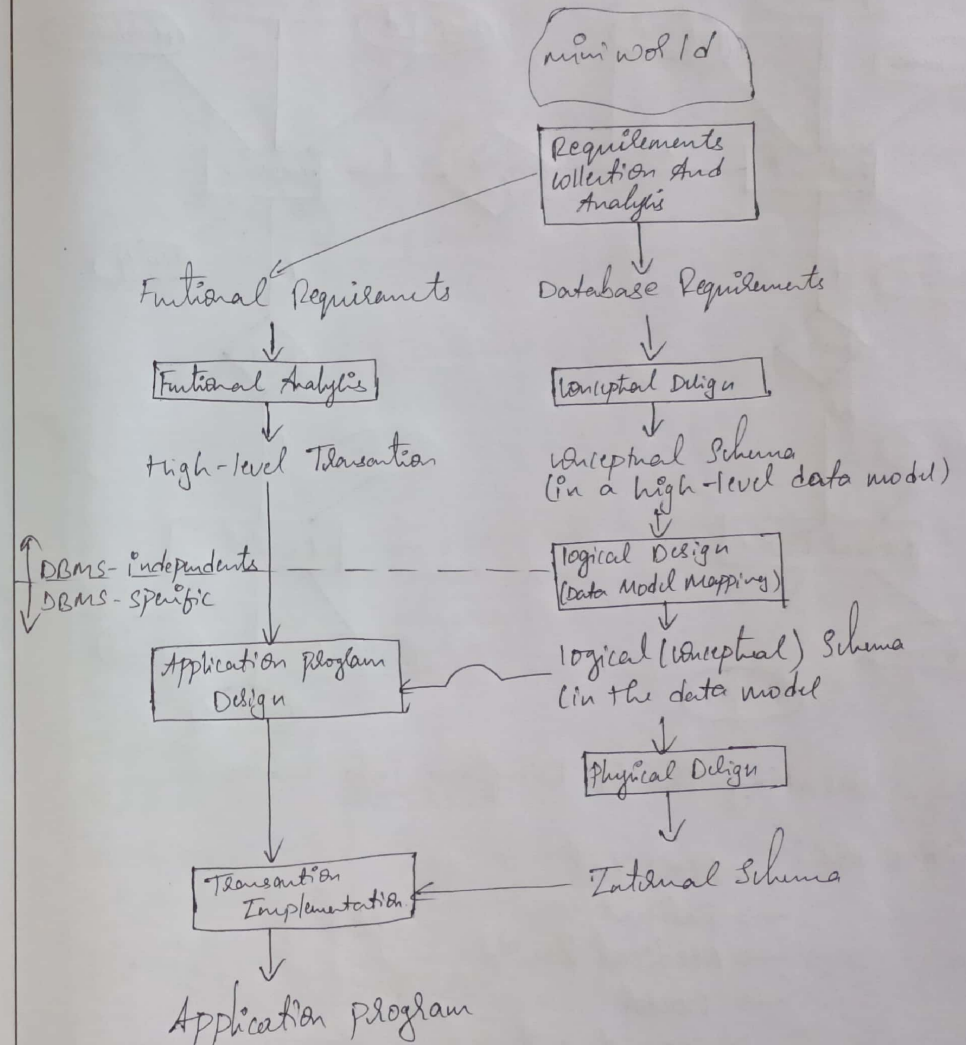 mini world
Requirements
collection And
Analysis
Funtional Requiramcts
Database Requirements
Funtional Analysis
Conceptual Design
High-level Transaction
Conceptual Schema
(in a high-level data model)
DBMS-independents
DBMS-specific
logical Design
(Data Model Mapping)
Application program
Design
logical (conceptual) Schema
(in the data model
Physical Design
Transaction
Implementation
Internal Schema
Application program